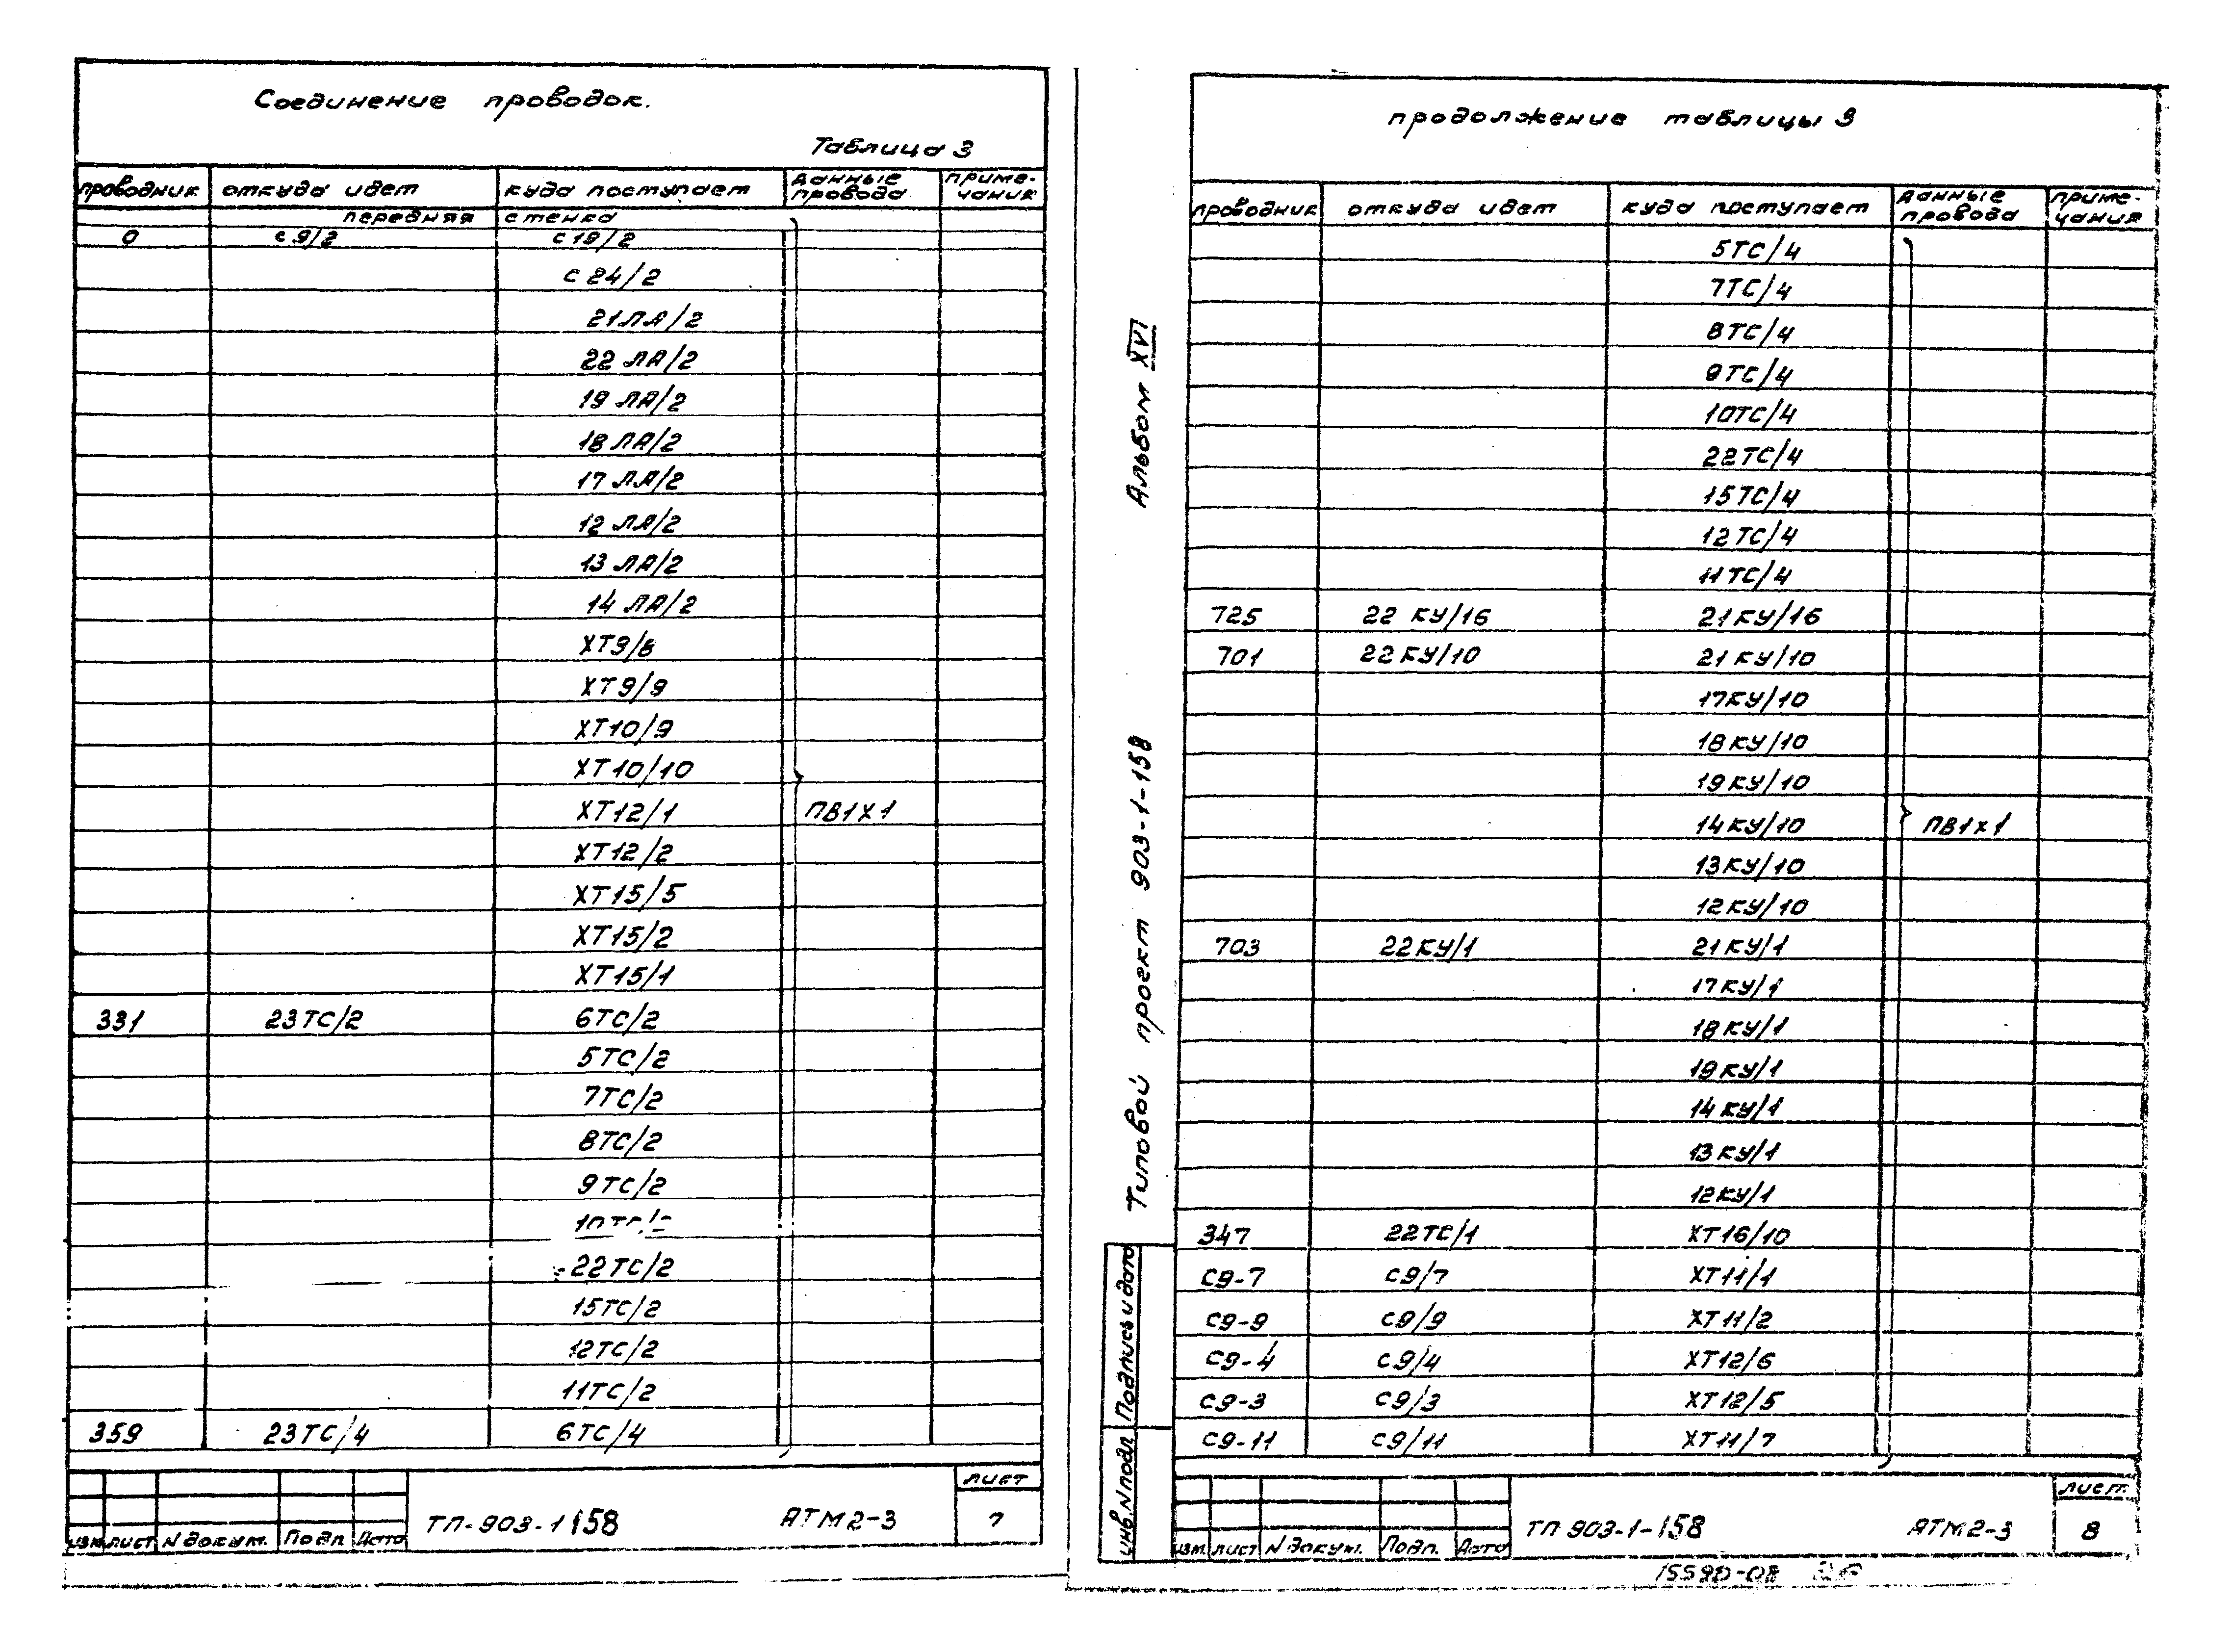 Соединение проводок.
Таблица 3
проводник откуда идет куда поступает данные провода примечания
передняя стенка
0 с9/2 с19/2
с24/2
21ЛА/2
22ЛА/2
19ЛА/2
18ЛА/2
17ЛА/2
12ЛА/2
13ЛА/2
14ЛА/2
ХТ9/8
ХТ9/9
ХТ10/9
ХТ10/10
ХТ12/1 ПВ1х1
ХТ12/2
ХТ15/5
ХТ15/2
ХТ15/1
331 23ТС/2 6ТС/2
5ТС/2
7ТС/2
8ТС/2
9ТС/2
10ТС/2
22ТС/2
15ТС/2
12ТС/2
11ТС/2
359 23ТС/4 6ТС/4
изм лист N докум. Подп Дата
ТП-903-1158 АТМ2-3
лист
7
Альбом XVI
Типовой проект 903-1-158
Подпись и дата
инв.N подл
продолжение таблицы 3
проводник откуда идет куда поступает данные провода примечания
5ТС/4
7ТС/4
8ТС/4
9ТС/4
10ТС/4
22ТС/4
15ТС/4
12ТС/4
11ТС/4
725 22КУ/16 21КУ/16
701 22КУ/10 21КУ/10
17КУ/10
18КУ/10
19КУ/10
14КУ/10 ПВ1х1
13КУ/10
12КУ/10
703 22КУ/1 21КУ/1
17КУ/1
18КУ/1
19КУ/1
14КУ/1
13КУ/1
12КУ/1
347 22ТС/1 ХТ16/10
С9-7 С9/7 ХТ11/1
С9-9 С9/9 ХТ11/2
С9-4 С9/4 ХТ12/6
С9-3 С9/3 ХТ12/5
С9-11 С9/11 ХТ11/7
изм лист N докум. Подп. Дата
ТП 903-1-158 АТМ2-3
лист
8
15590-08